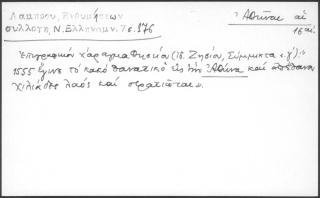 Λάμπρου, Ἐνθυμήσεων
συλλογή, Ν. Ἑλληνομν. 7 σ. 176
Ἀθῆναι αἱ
16 αἰ.
Ἐπιγραφαί χαράγμα Θησεῖα (ἰδ. Ζησίου, Σύμμικτα σ. γ')
1555 ἔγινε τό κακό θανατικό εἰς τήν Ἀθήνα καί ἀπέθαναν
χιλιάδες λαός καί στρατιῶται